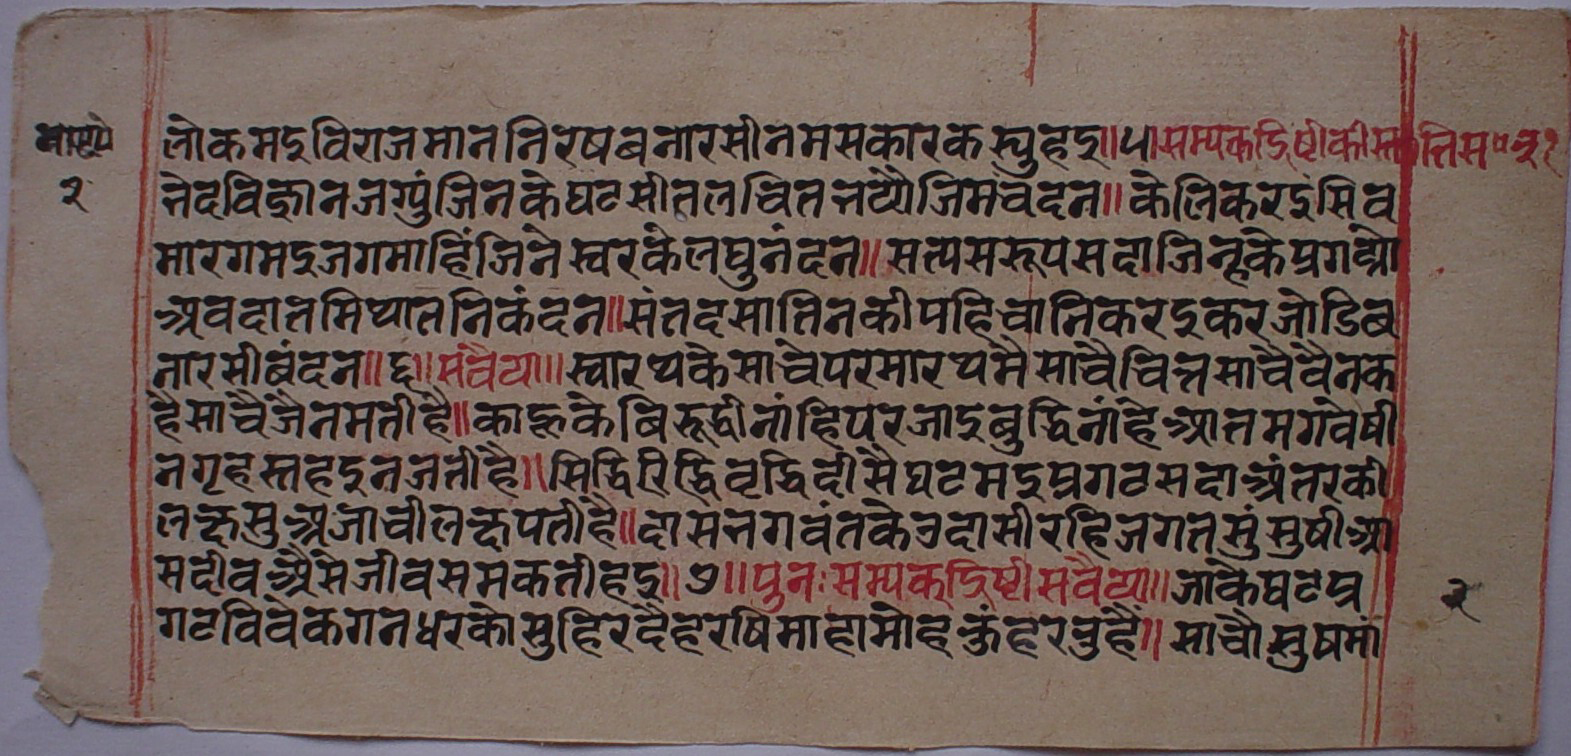 लोकमइ विराजमान निरष बनारसी नमसकारक स्युहइ॥५॥सम्यकद्रिष्टीकीस्तुतिस॰
२
नेदविज्ञान जग्युं जिनके घट सीतल चित नयौ जिम चंदन॥ केलि करइ सिव
मारगमइ जगमाहिं जिनेस्वरके लघुनंदन॥ सत्यसरूप सदा जिन्हके प्रगट्यो
अवदात मिथ्यात निकंदन॥संतदसा तिनकी पहिचानि करइ कर जोडि ब
नारसी बंदन॥६॥सवैया॥स्वारथके साचे परमारथमै साचै चित्त साचै वैनक
है साचै जैनमती है॥काहूके बिरूद्वी नांहि परजाइ बुद्धि नांहे आतमगवेषी
न गृहस्त हइ न जती है॥सिद्धि रिद्धि वृद्धि दीसै घटमइ प्रगट सदा अंतरकी
लछसु अजाची लछपती है॥दास नगवंतके उदासी रहि जगतसुं सुषी आ
सदीव अैसे जीव समकती हइ॥७॥पुनःसम्यक्द्रिष्टी सवैया॥जाकै घट प्र
२
गट विवेक गनधरकोसु हिरदै हरषि माहामोहकुं हरतु है॥साचौ सुष मां